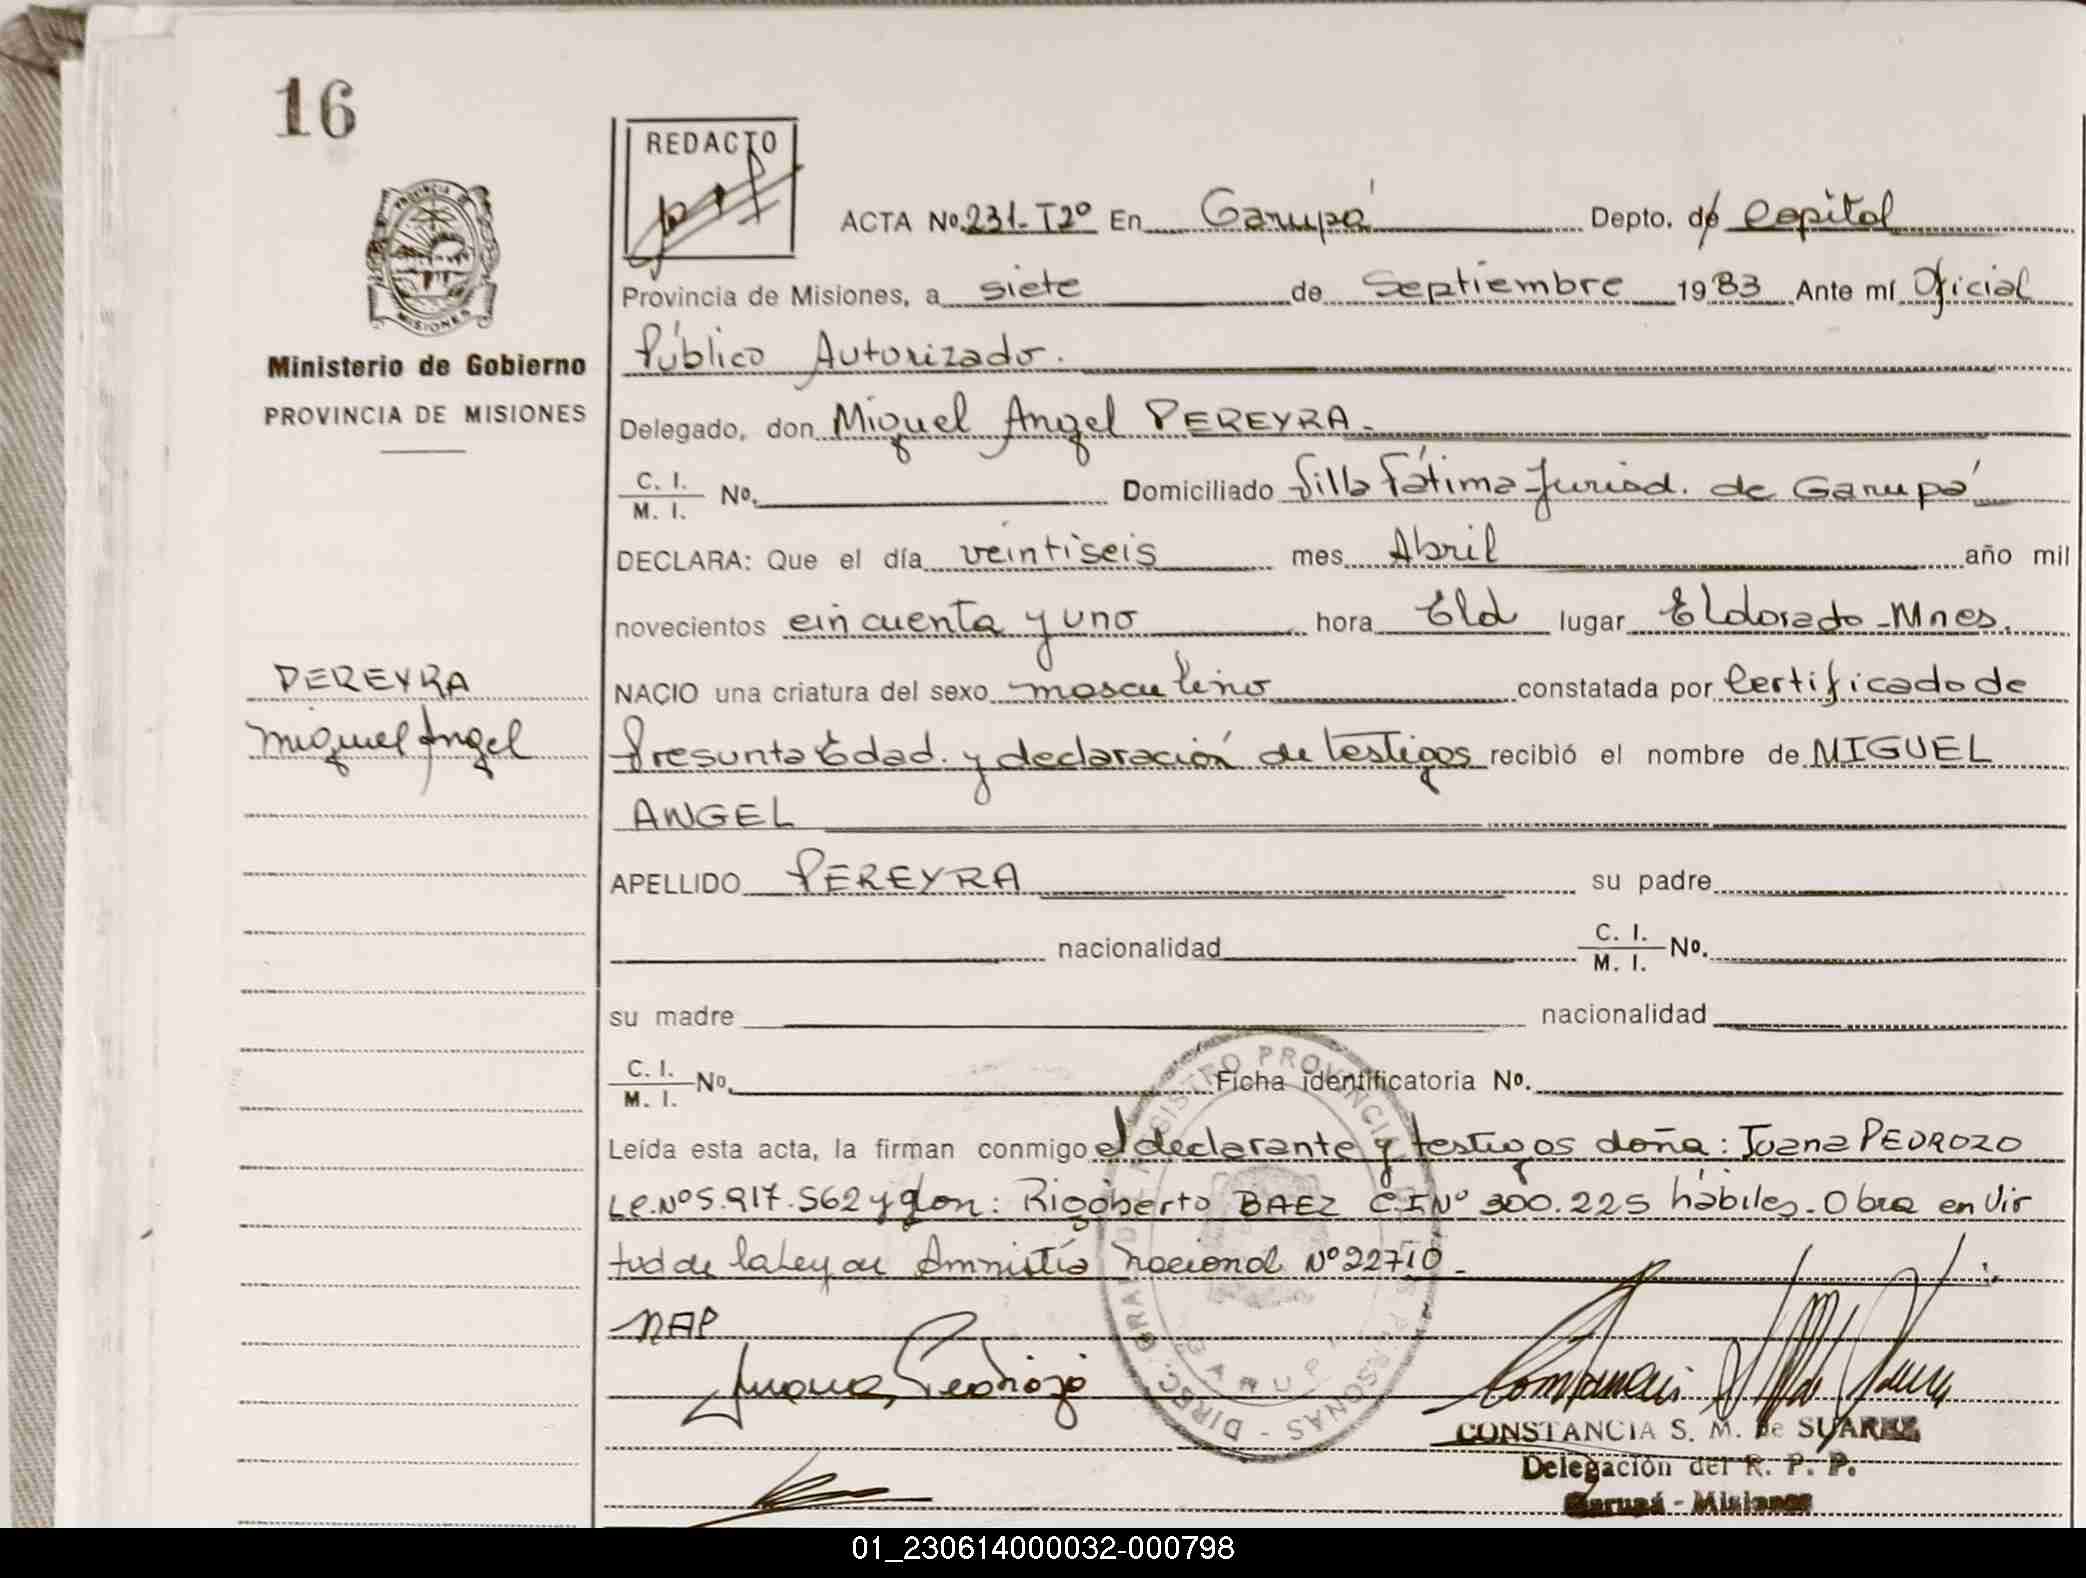 16
REDACTO
ACTA No. 231-T2º En Garupá Depto. de Capital
Provincia de Misiones, a siete de Septiembre 1983 Ante mí Oficial
Público Autorizado.
Ministerio de Gobierno
PROVINCIA DE MISIONES
Delegado, don Miguel Angel PEREYRA-
C. I.
M. I. No. Domiciliado Villa Fátima-Jurisd. de Garupá
DECLARA: Que el día veintiseis mes Abril año mil
novecientos cincuenta y uno hora lugar Eldorado-Mnes.
PEREYRA
Miguel Angel
NACIO una criatura del sexo masculino constatada por Certificado de
Presunta Edad. y declaración de testigos recibió el nombre de MIGUEL
ANGEL
APELLIDO PEREYRA su padre
nacionalidad C. I.
M. I. No.
su madre nacionalidad
C. I.
M. I. No. Ficha identificatoria No.
Leída esta acta, la firman conmigo el declarante y testigos doña: Juana PEDROZO
LC. Nº 5.917.562 y don: Rigoberto BAEZ C.I Nº 300.225 hábiles. Obra en Vir
tud de la Ley de Amnistía Nacional Nº 22710.-
MAP
Juana Pedrozo
CONSTANCIA S. M. de SUAREZ
Delegación del R. P. P.
Garupá - Misiones
PROVINCIA DE MISIONES
DIREC. GRAL. DE REGISTRO PROVINCIAL DE LAS PERSONAS - GARUPA
01_230614000032-000798